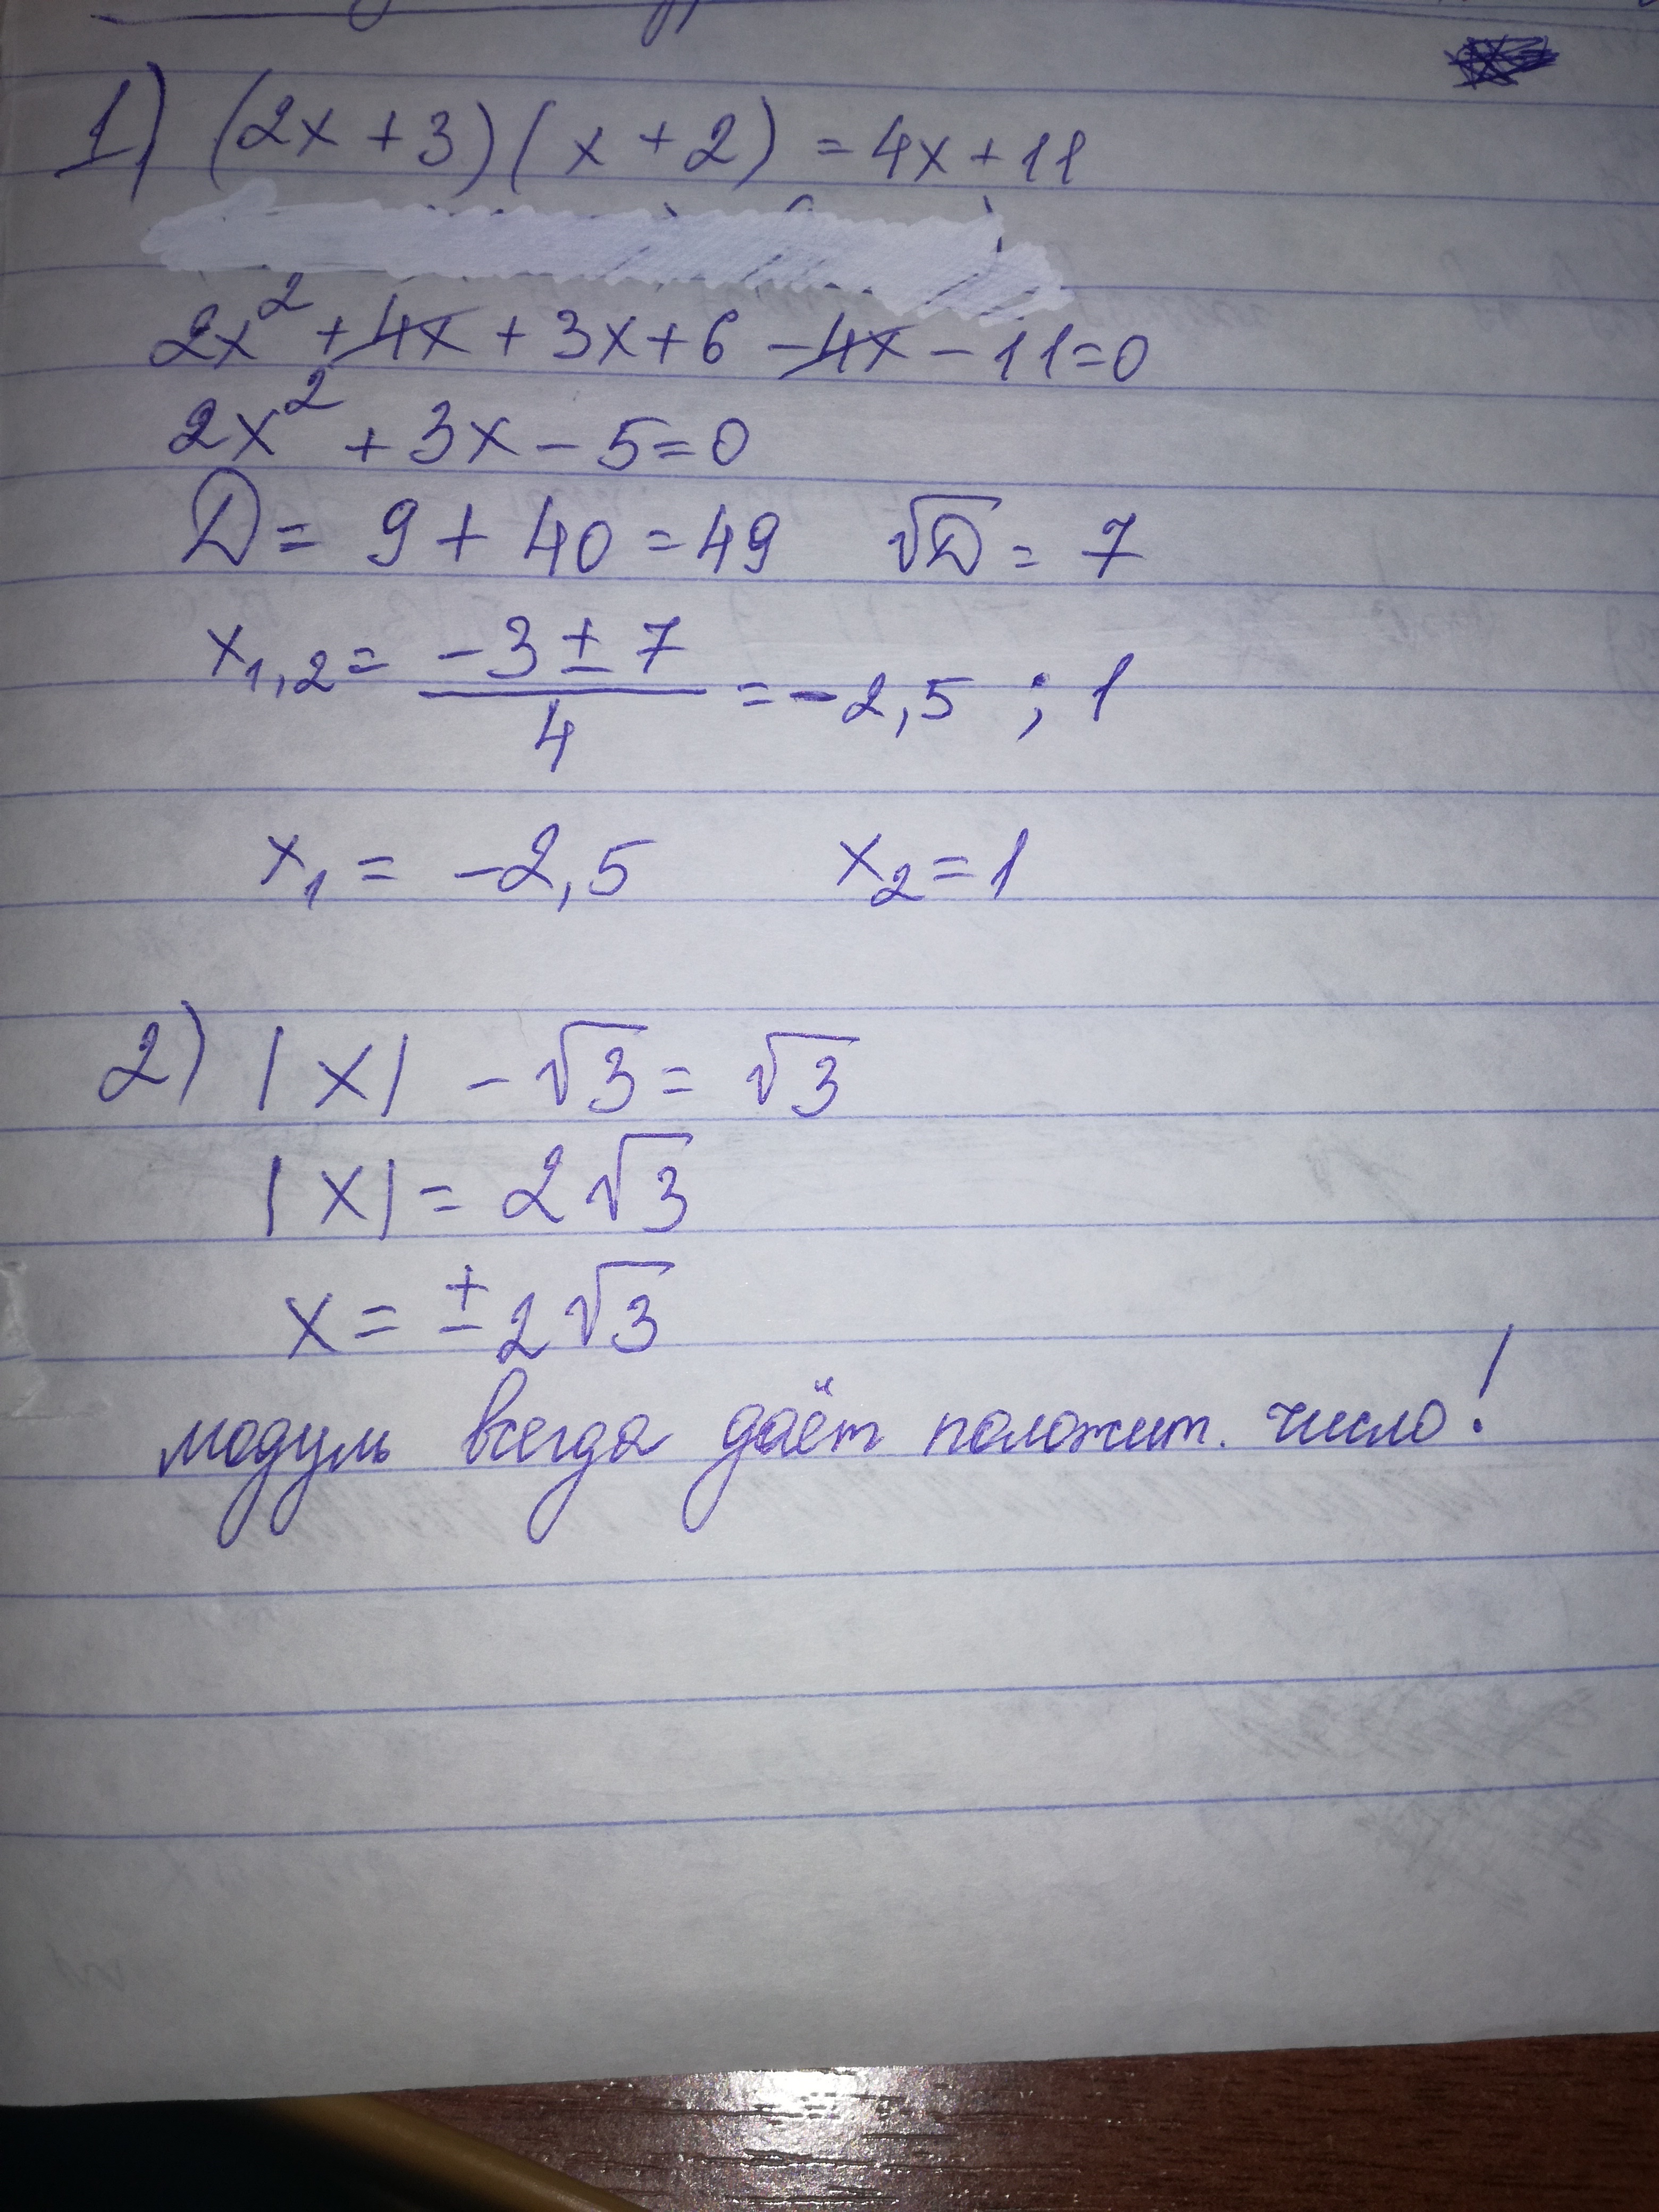 1) (2x + 3)(x + 2) = 4x + 11
2x² + 4x + 3x + 6 - 4x - 11 = 0
2x² + 3x - 5 = 0
D = 9 + 40 = 49 √D = 7
x₁,₂ = (-3 ± 7)/4 = -2,5 ; 1
x₁ = -2,5 x₂ = 1
2) |x| - √3 = √3
|x| = 2√3
x = ± 2√3
модуль всегда даёт положит. число!